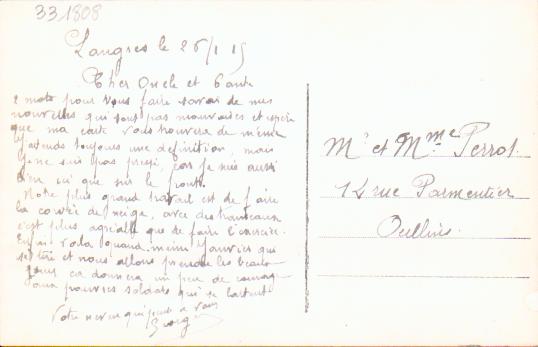 331808
Langres le 26/1 15
Cher Oncle et Tante
2 mots pour vous faire savoir de mes
nouvelles qui sont pas mauvaises et espère
que ma carte vous trouvera de même
J'attends toujours une définition, mais
je ne suis pas pressé, car je suis aussi
bien ici que sur le front.
Notre plus grand travail est de faire
la corvée de neige, avec des traineaux
c'est plus agréable que de faire l'exercice.
Enfin voila quand même Janvier qui
se tire et nous allons prendre les beaux
jours ça donnera un peu de courage
aux pauvres soldats qui se battent
Votre neveu qui pense a vous
Georges
Mr et Mme Perrot
14 rue Parmentier
Oullins